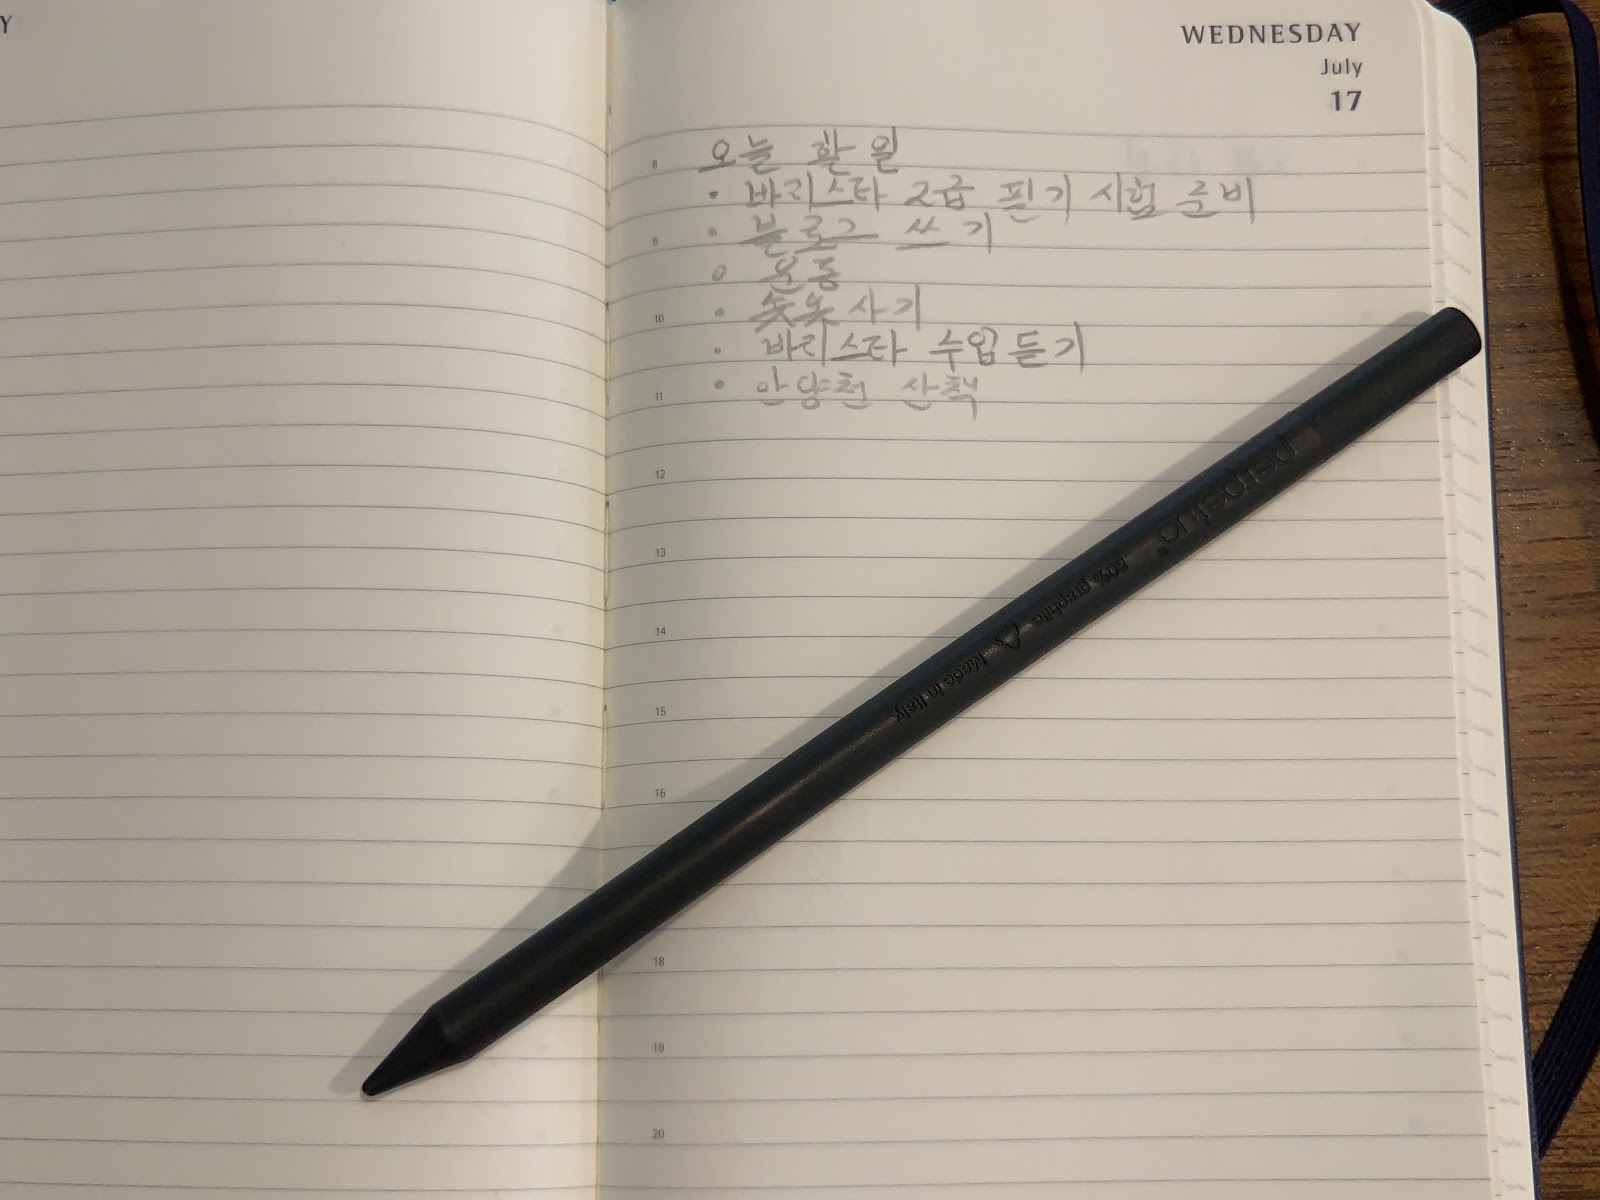 Y
WEDNESDAY
July
17
8 오늘 할 일
• 바리스타 2급 필기 시험 준비
9 • 블로그 쓰기
• 운동
10 • 로또 사기
• 바리스타 수업 듣기
11 • 안양천 산책
12
13
14
15
16
18
19
20
perpetua
80% graphite Made in Italy